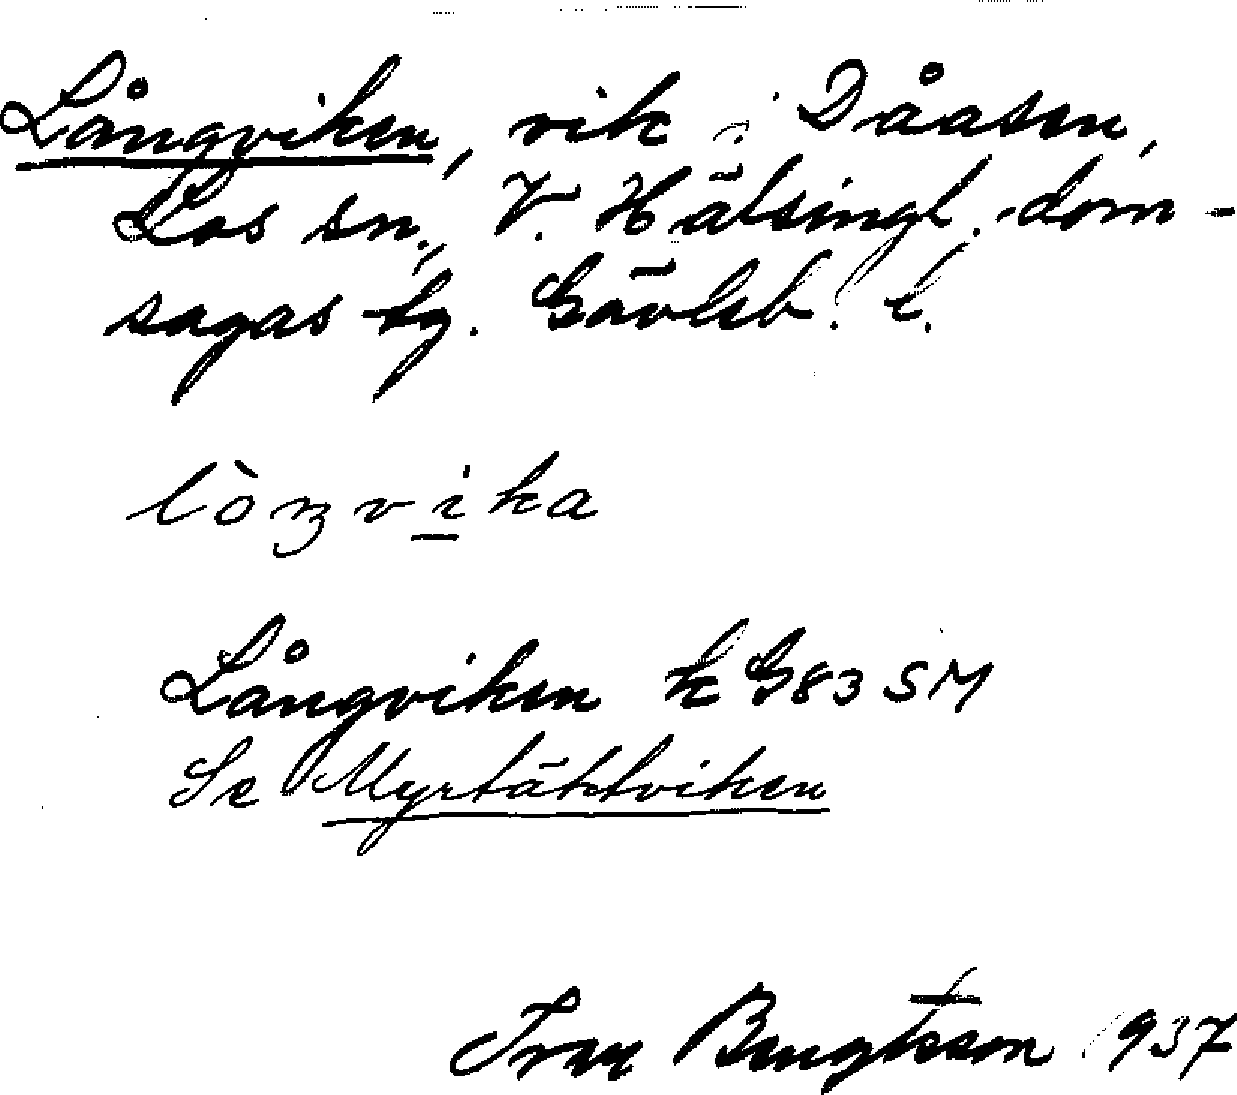 Långviken, vik i Dåasen,
Los sn., V. Hälsingl. dom-
sagas tg. Gävleb. l.
lòŋvika
Långviken k G83 SM
Se Myrtäktviken
Bengtsson 1937